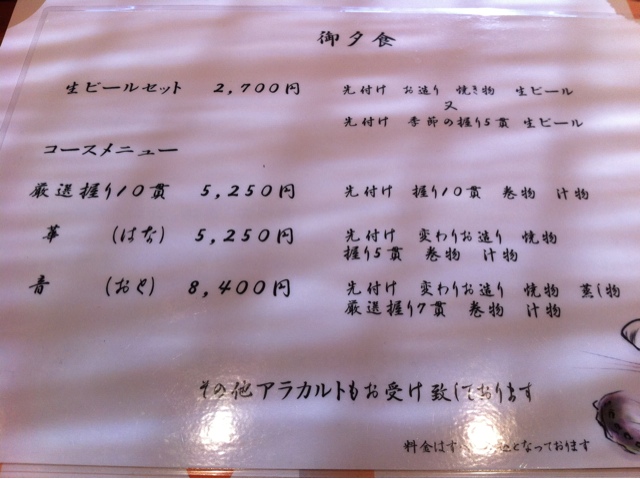 御夕食
生ビールセット 2,700円 先付け お造り 焼き物 生ビール
又
先付け 季節の握り5貫 生ビール
コースメニュー
厳選握り10貫 5,250円 先付け 握り10貫 巻物 汁物
華 (はな) 5,250円 先付け 変わりお造り 焼物
握り5貫 巻物 汁物
音 (おと) 8,400円 先付け 変わりお造り 焼物 蒸し物
厳選握り7貫 巻物 汁物
その他アラカルトもお受け致しております
料金はす となっております